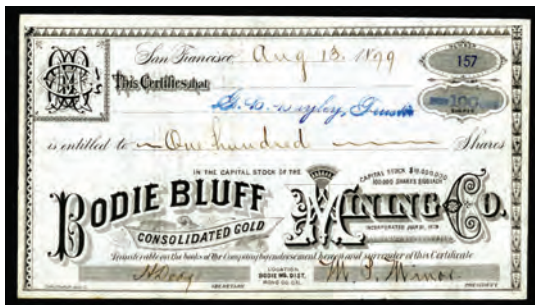 NUMBER
157
San Francisco, Aug 13, 1899
This Certifies that
100
SHARES
is entitled to One hundred Shares
IN THE CAPITAL STOCK OF THE
CAPITAL STOCK $10,000,000
100,000 SHARES $100 EACH
BODIE BLUFF
CONSOLIDATED GOLD
MINING CO.
Transferable on the books of the Company by endorsement hereon and surrender of this Certificate
SECRETARY
LOCATION
BODIE MG. DIST.
MONO CO. CAL.
PRESIDENT